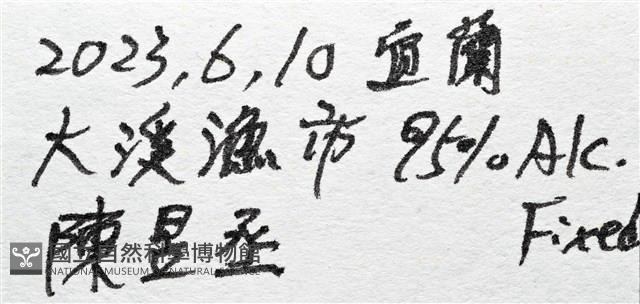 2023,6,10 宜蘭
大溪漁市 95% Alc.
陳昱丞 Fixed
國立自然科學博物館
NATIONAL MUSEUM OF NATURAL SCIENCE